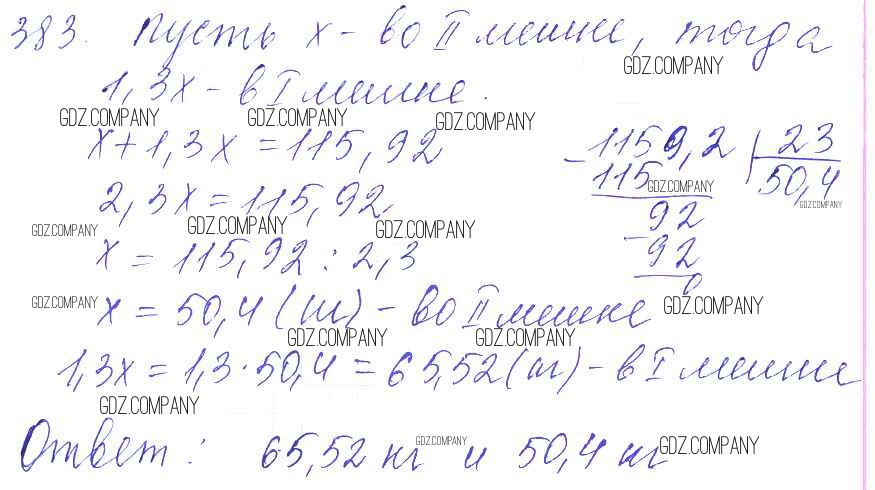 383. Пусть x - во II мешке, тогда
GDZ.COMPANY
1,3x - в I мешке.
GDZ.COMPANY GDZ.COMPANY GDZ.COMPANY
x + 1,3x = 115,92
2,3x = 115,92
GDZ.COMPANY GDZ.COMPANY GDZ.COMPANY
x = 115,92 : 2,3
- 1159,2 | 23
115 50,4
GDZ.COMPANY GDZ.COMPANY
92
- 92
0
GDZ.COMPANY GDZ.COMPANY
x = 50,4 (кг) - во II мешке
GDZ.COMPANY GDZ.COMPANY
1,3x = 1,3 · 50,4 = 65,52 (кг) - в I мешке
GDZ.COMPANY
Ответ: 65,52 кг и 50,4 кг
GDZ.COMPANY GDZ.COMPANY